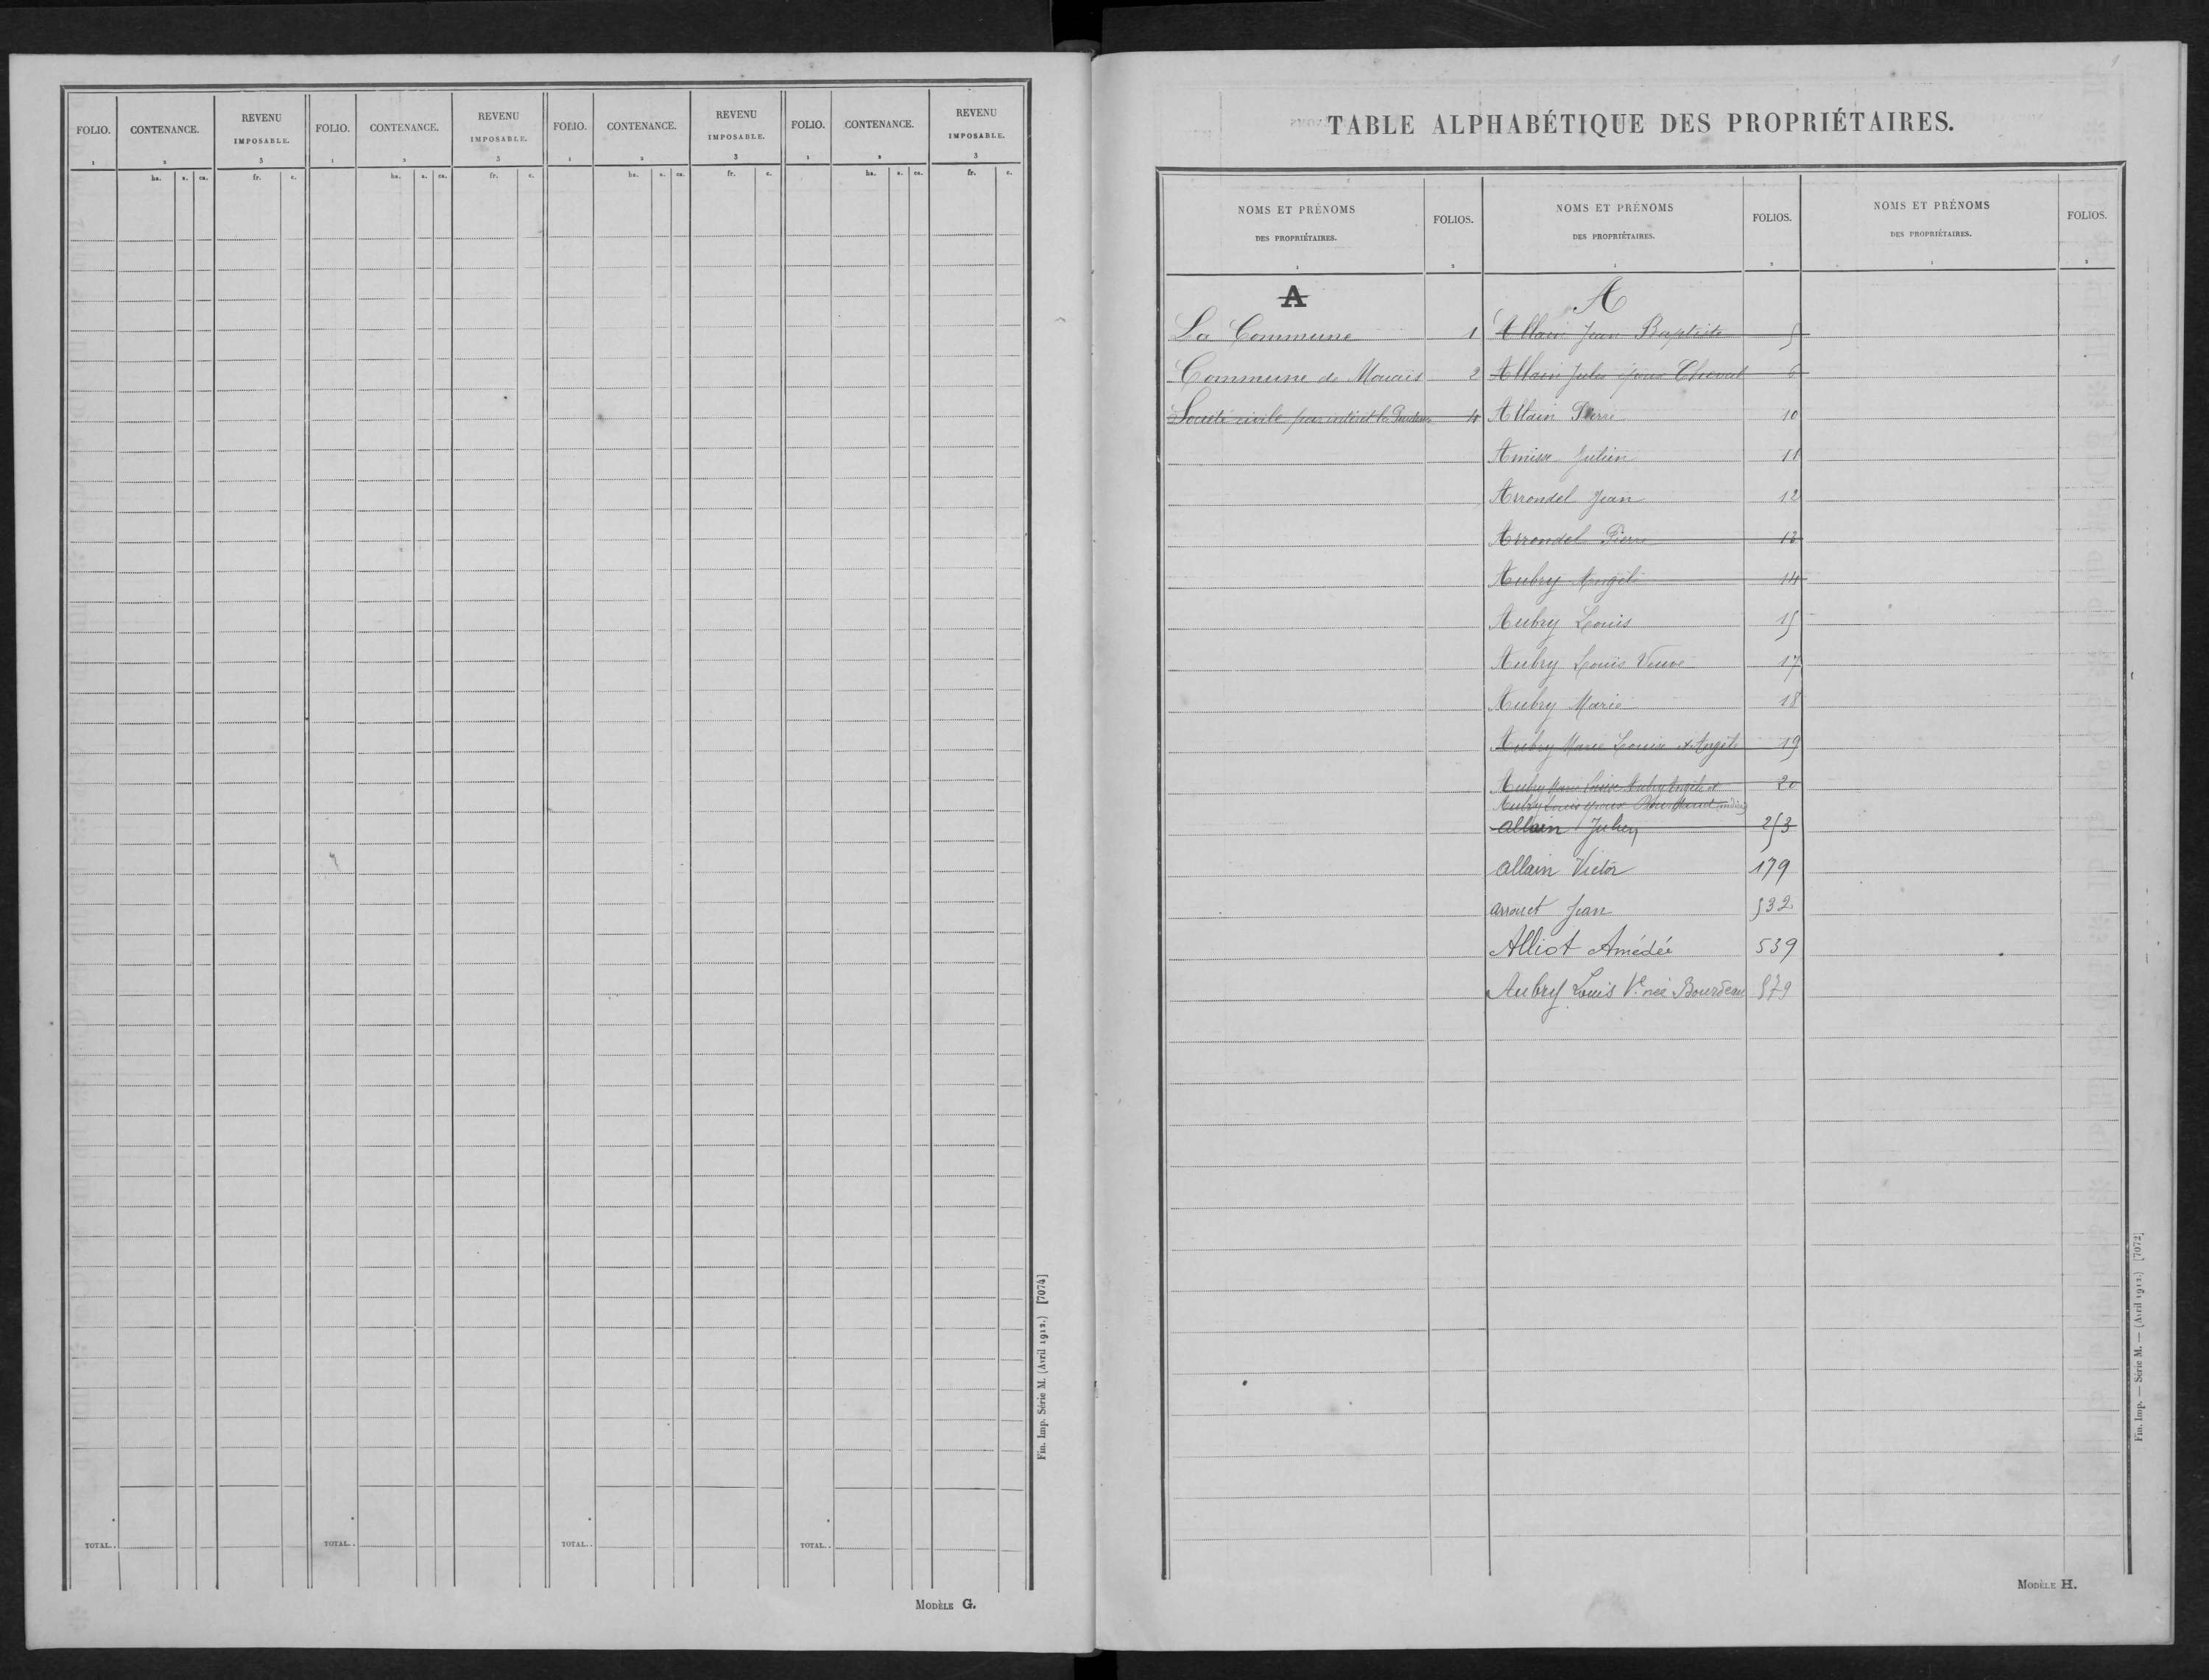 FOLIO. CONTENANCE. REVENU IMPOSABLE. FOLIO. CONTENANCE. REVENU IMPOSABLE. FOLIO. CONTENANCE. REVENU IMPOSABLE. FOLIO. CONTENANCE. REVENU IMPOSABLE.
1 2 3 1 2 3 1 2 3 1 2 3
ha. a. ca. fr. c. ha. a. ca. fr. c. ha. a. ca. fr. c. ha. a. ca. fr. c.
TOTAL.. TOTAL.. TOTAL.. TOTAL..
Fin. Imp. Série M. (Avril 1912.) [7074]
MODÈLE G.
TABLE ALPHABÉTIQUE DES PROPRIÉTAIRES.
NOMS ET PRÉNOMS DES PROPRIÉTAIRES. FOLIOS. NOMS ET PRÉNOMS DES PROPRIÉTAIRES. FOLIOS. NOMS ET PRÉNOMS DES PROPRIÉTAIRES. FOLIOS.
1 2 1 2 1 2
A
La Commune 1
Commune de Mouais 2
Société civile 4
A
Allain Jean Baptiste 5
Allain Jules époux Chevrel 6
Allain Pierre 10
Amisse Julien 11
Arrondel Jean 12
Arrondel Pierre 13
Aubry Angèle 14
Aubry Louis 15
Aubry Louis Veuve 17
Aubry Marie 18
Aubry Marie Louise et Angèle 19
Aubry Marie Louise Aubry Angèle et 20
Aubry Louis époux
allain Julien 253
allain Victor 179
arrouet Jean 532
Alliot Amédée 539
Aubry Louis Ve née Bourdeau 579
Fin. Imp. — Série M. — (Avril 1912.) [7072]
MODÈLE H.